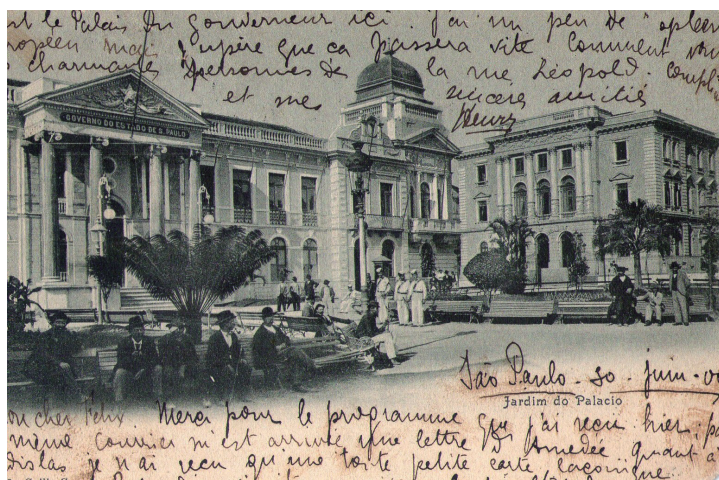 est le Palais du Gouverneur ici. J'ai un peu de "spleen
européen mais j'espère que ça passera vite Comment vont
charmantes personnes de la rue Léopold.
et mes sincères amitiés
Henry
GOVERNO DO ESTADO DE S. PAULO
São Paulo - 30 juin - 00
Jardim do Palacio
Mon cher Felix. Merci pour le programme que j'ai reçu hier,
même Courrier m'est arrivé une lettre d'Amedée. quant à
je n'ai reçu qu'une toute petite carte laconique